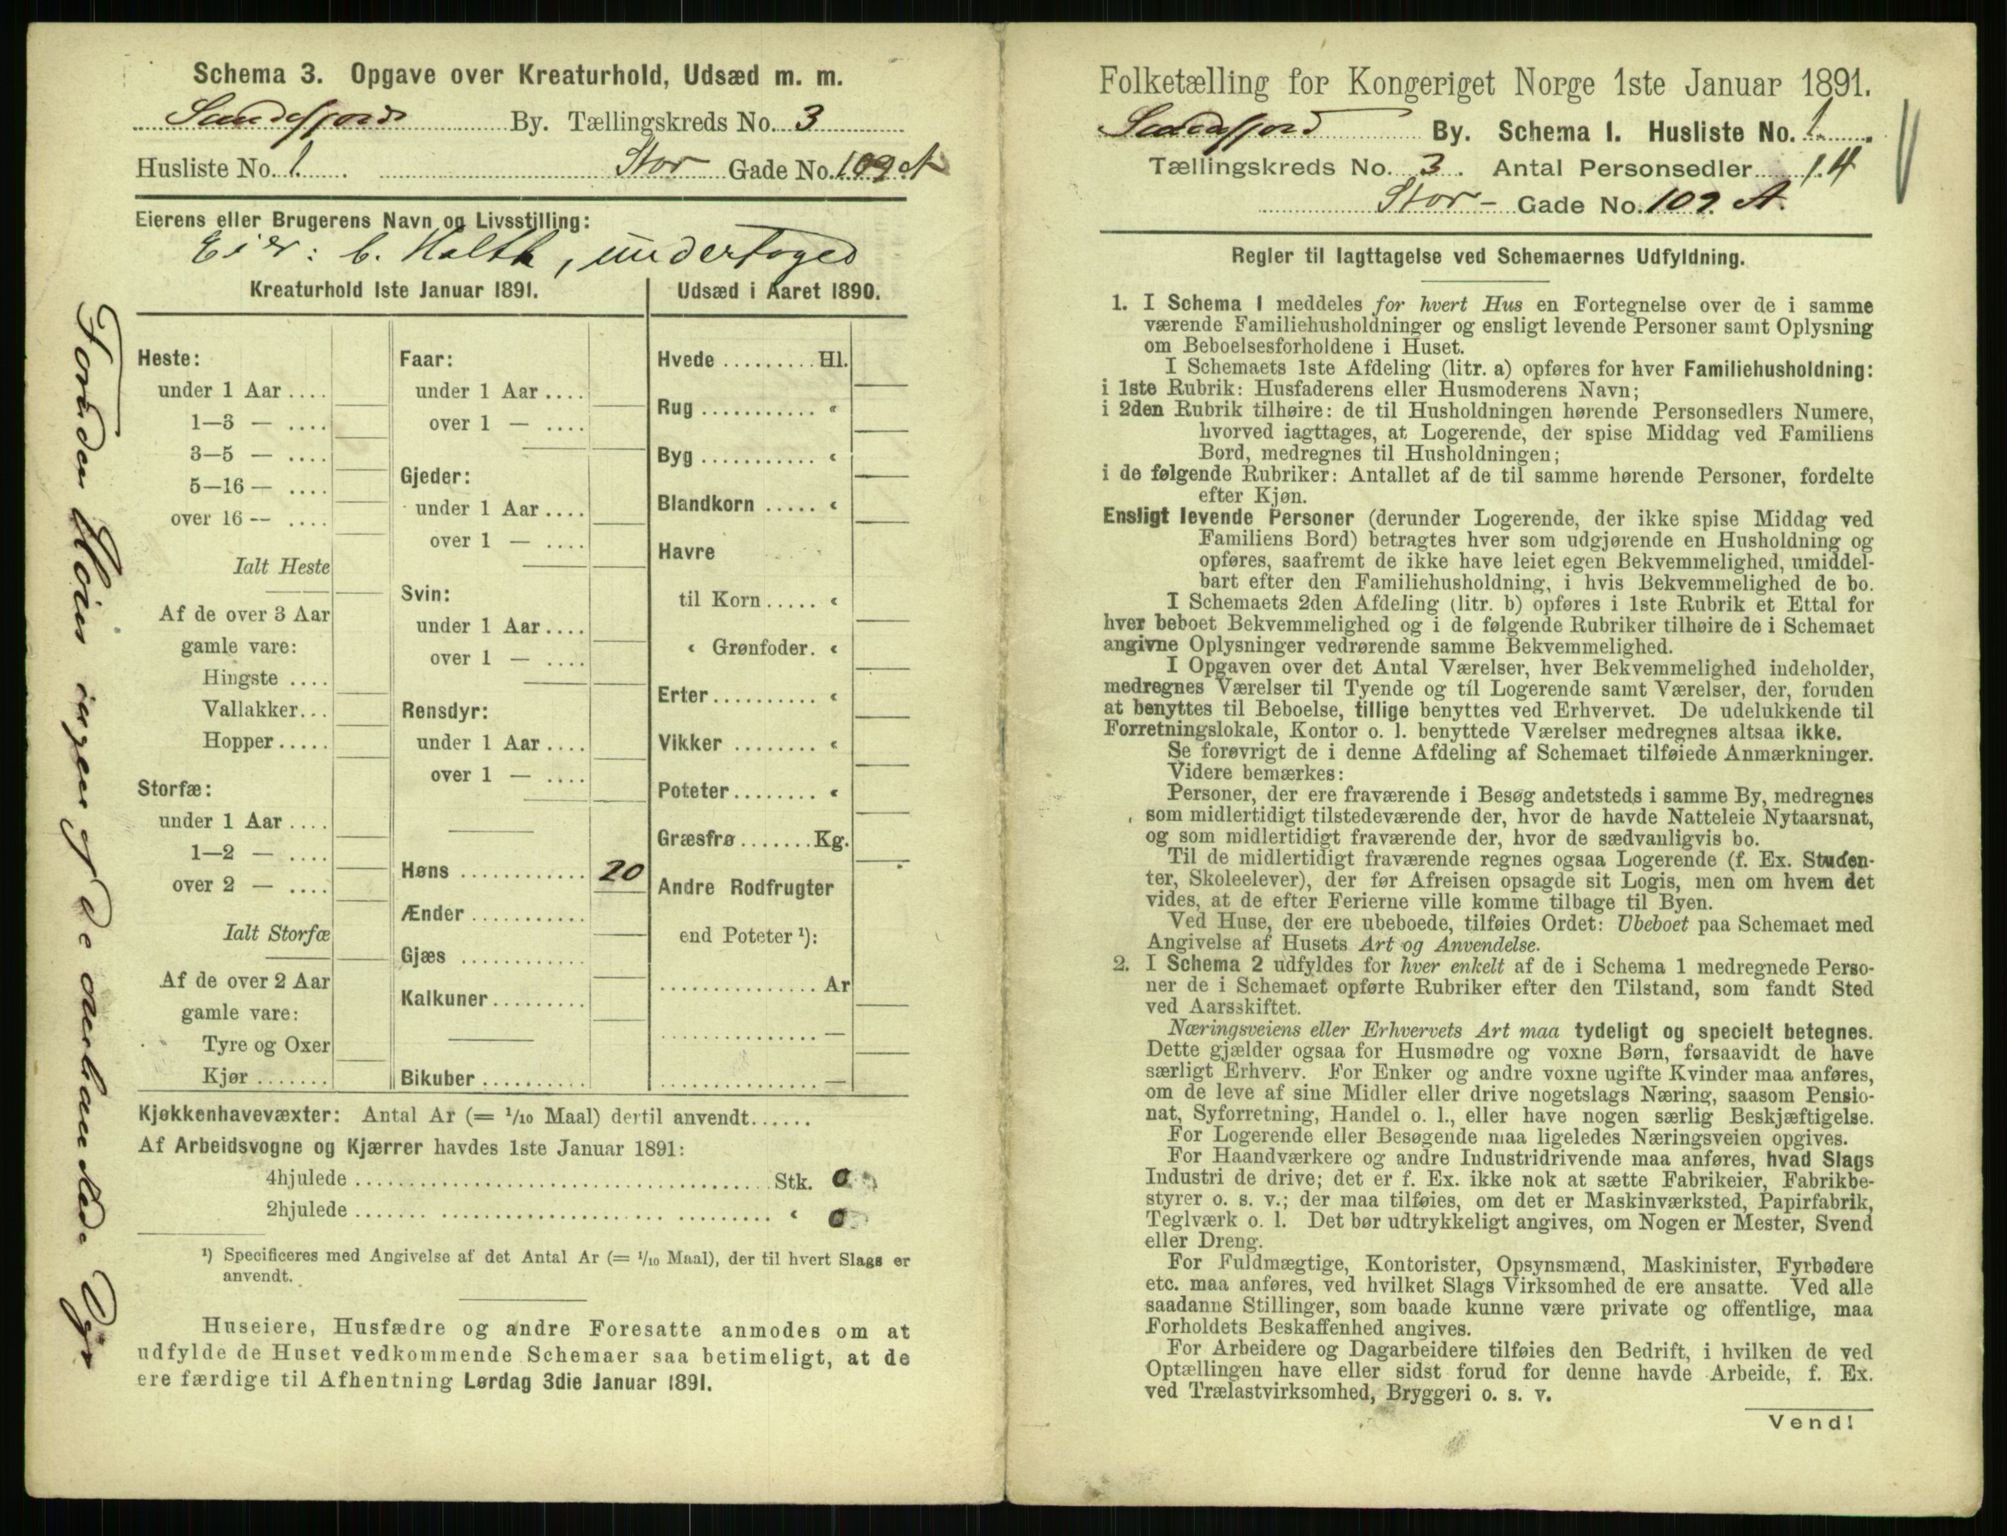 Schema 3. Opgave over Kreaturhold, Udsæd m. m.
Sandefjord By. Tællingskreds No. 3
Husliste No. 1. Stor Gade No. 109 A
Eierens eller Brugerens Navn og Livsstilling:
Eier: C. Holth,
Kreaturhold 1ste Januar 1891.
Udsæd i Aaret 1890.
Heste:
under 1 Aar ....
1—3 — ....
3—5 — ....
5—16 — ....
over 16 -- ....
Ialt Heste
Af de over 3 Aar
gamle vare:
Hingste ....
Vallakker...
Hopper.....
Storfæ:
under 1 Aar ....
1—2 — ....
over 2 — ....
Ialt Storfæ
Af de over 2 Aar
gamle vare:
Tyre og Oxer
Kjør .......
Faar:
under 1 Aar ....
over 1 — ....
Gjeder:
under 1 Aar....
over 1 — ....
Svin:
under 1 Aar....
over 1 — ....
Rensdyr:
under 1 Aar....
over 1 — ....
Høns ............ 20
Ænder ...........
Gjæs ............
Kalkuner.........
Bikuber ..........
Hvede ......... Hl.
Rug ........... «
Byg ........... «
Blandkorn ..... «
Havre
til Korn ..... «
« Grønfoder. «
Erter .......... «
Vikker ........ «
Poteter ........ «
Græsfrø ....... Kg.
Andre Rodfrugter
end Poteter ¹):
............... Ar
............... —
............... —
Kjøkkenhavevæxter: Antal Ar (= 1/10 Maal) dertil anvendt......
Af Arbeidsvogne og Kjærrer havdes 1ste Januar 1891:
4hjulede ........................................ Stk. 0
2hjulede ........................................ « 0
¹) Specificeres med Angivelse af det Antal Ar (= 1/10 Maal), der til hvert Slags er
anvendt.
Huseiere, Husfædre og andre Foresatte anmodes om at
udfylde de Huset vedkommende Schemaer saa betimeligt, at de
ere færdige til Afhentning Lørdag 3die Januar 1891.
Foruden Høns ingen af de Dyr
Folketælling for Kongeriget Norge 1ste Januar 1891.
Sandefjord By. Schema 1. Husliste No. 1.
Tællingskreds No. 3. Antal Personsedler 14
Stor- Gade No. 109 A.
Regler til Iagttagelse ved Schemaernes Udfyldning.
1. I Schema 1 meddeles for hvert Hus en Fortegnelse over de i samme
værende Familiehusholdninger og ensligt levende Personer samt Oplysning
om Beboelsesforholdene i Huset.
I Schemaets 1ste Afdeling (litr. a) opføres for hver Familiehusholdning:
i 1ste Rubrik: Husfaderens eller Husmoderens Navn;
i 2den Rubrik tilhøire: de til Husholdningen hørende Personsedlers Numere,
hvorved iagttages, at Logerende, der spise Middag ved Familiens
Bord, medregnes til Husholdningen;
i de følgende Rubriker: Antallet af de til samme hørende Personer, fordelte
efter Kjøn.
Ensligt levende Personer (derunder Logerende, der ikke spise Middag ved
Familiens Bord) betragtes hver som udgjørende en Husholdning og
opføres, saafremt de ikke have leiet egen Bekvemmelighed, umiddel-
bart efter den Familiehusholdning, i hvis Bekvemmelighed de bo.
I Schemaets 2den Afdeling (litr. b) opføres i 1ste Rubrik et Ettal for
hver beboet Bekvemmelighed og i de følgende Rubriker tilhøire de i Schemaet
angivne Oplysninger vedrørende samme Bekvemmelighed.
I Opgaven over det Antal Værelser, hver Bekvemmelighed indeholder,
medregnes Værelser til Tyende og til Logerende samt Værelser, der, foruden
at benyttes til Beboelse, tillige benyttes ved Erhvervet. De udelukkende til
Forretningslokale, Kontor o. l. benyttede Værelser medregnes altsaa ikke.
Se forøvrigt de i denne Afdeling af Schemaet tilføiede Anmærkninger.
Videre bemærkes:
Personer, der ere fraværende i Besøg andetsteds i samme By, medregnes
som midlertidigt tilstedeværende der, hvor de havde Natteleie Nytaarsnat,
og som midlertidigt fraværende der, hvor de sædvanligvis bo.
Til de midlertidigt fraværende regnes ogsaa Logerende (f. Ex. Studen-
ter, Skoleelever), der før Afreisen opsagde sit Logis, men om hvem det
vides, at de efter Ferierne ville komme tilbage til Byen.
Ved Huse, der ere ubeboede, tilføies Ordet: Ubeboet paa Schemaet med
Angivelse af Husets Art og Anvendelse.
2. I Schema 2 udfyldes for hver enkelt af de i Schema 1 medregnede Perso-
ner de i Schemaet opførte Rubriker efter den Tilstand, som fandt Sted
ved Aarsskiftet.
Næringsveiens eller Erhvervets Art maa tydeligt og specielt betegnes.
Dette gjælder ogsaa for Husmødre og voxne Børn, forsaavidt de have
særligt Erhverv. For Enker og andre voxne ugifte Kvinder maa anføres,
om de leve af sine Midler eller drive nogetslags Næring, saasom Pensio-
nat, Syforretning, Handel o. l., eller have nogen særlig Beskjæftigelse.
For Logerende eller Besøgende maa ligeledes Næringsveien opgives.
For Haandværkere og andre Industridrivende maa anføres, hvad Slags
Industri de drive; det er f. Ex. ikke nok at sætte Fabrikeier, Fabrikbe-
styrer o. s. v.; der maa tilføies, om det er Maskinværksted, Papirfabrik,
Teglværk o. l. Det bør udtrykkeligt angives, om Nogen er Mester, Svend
eller Dreng.
For Fuldmægtige, Kontorister, Opsynsmænd, Maskinister, Fyrbødere
etc. maa anføres, ved hvilket Slags Virksomhed de ere ansatte. Ved alle
saadanne Stillinger, som baade kunne være private og offentlige, maa
Forholdets Beskaffenhed angives.
For Arbeidere og Dagarbeidere tilføies den Bedrift, i hvilken de ved
Optællingen have eller sidst forud for denne havde Arbeide, f. Ex.
ved Trælastvirksomhed, Bryggeri o. s. v.
Vend!